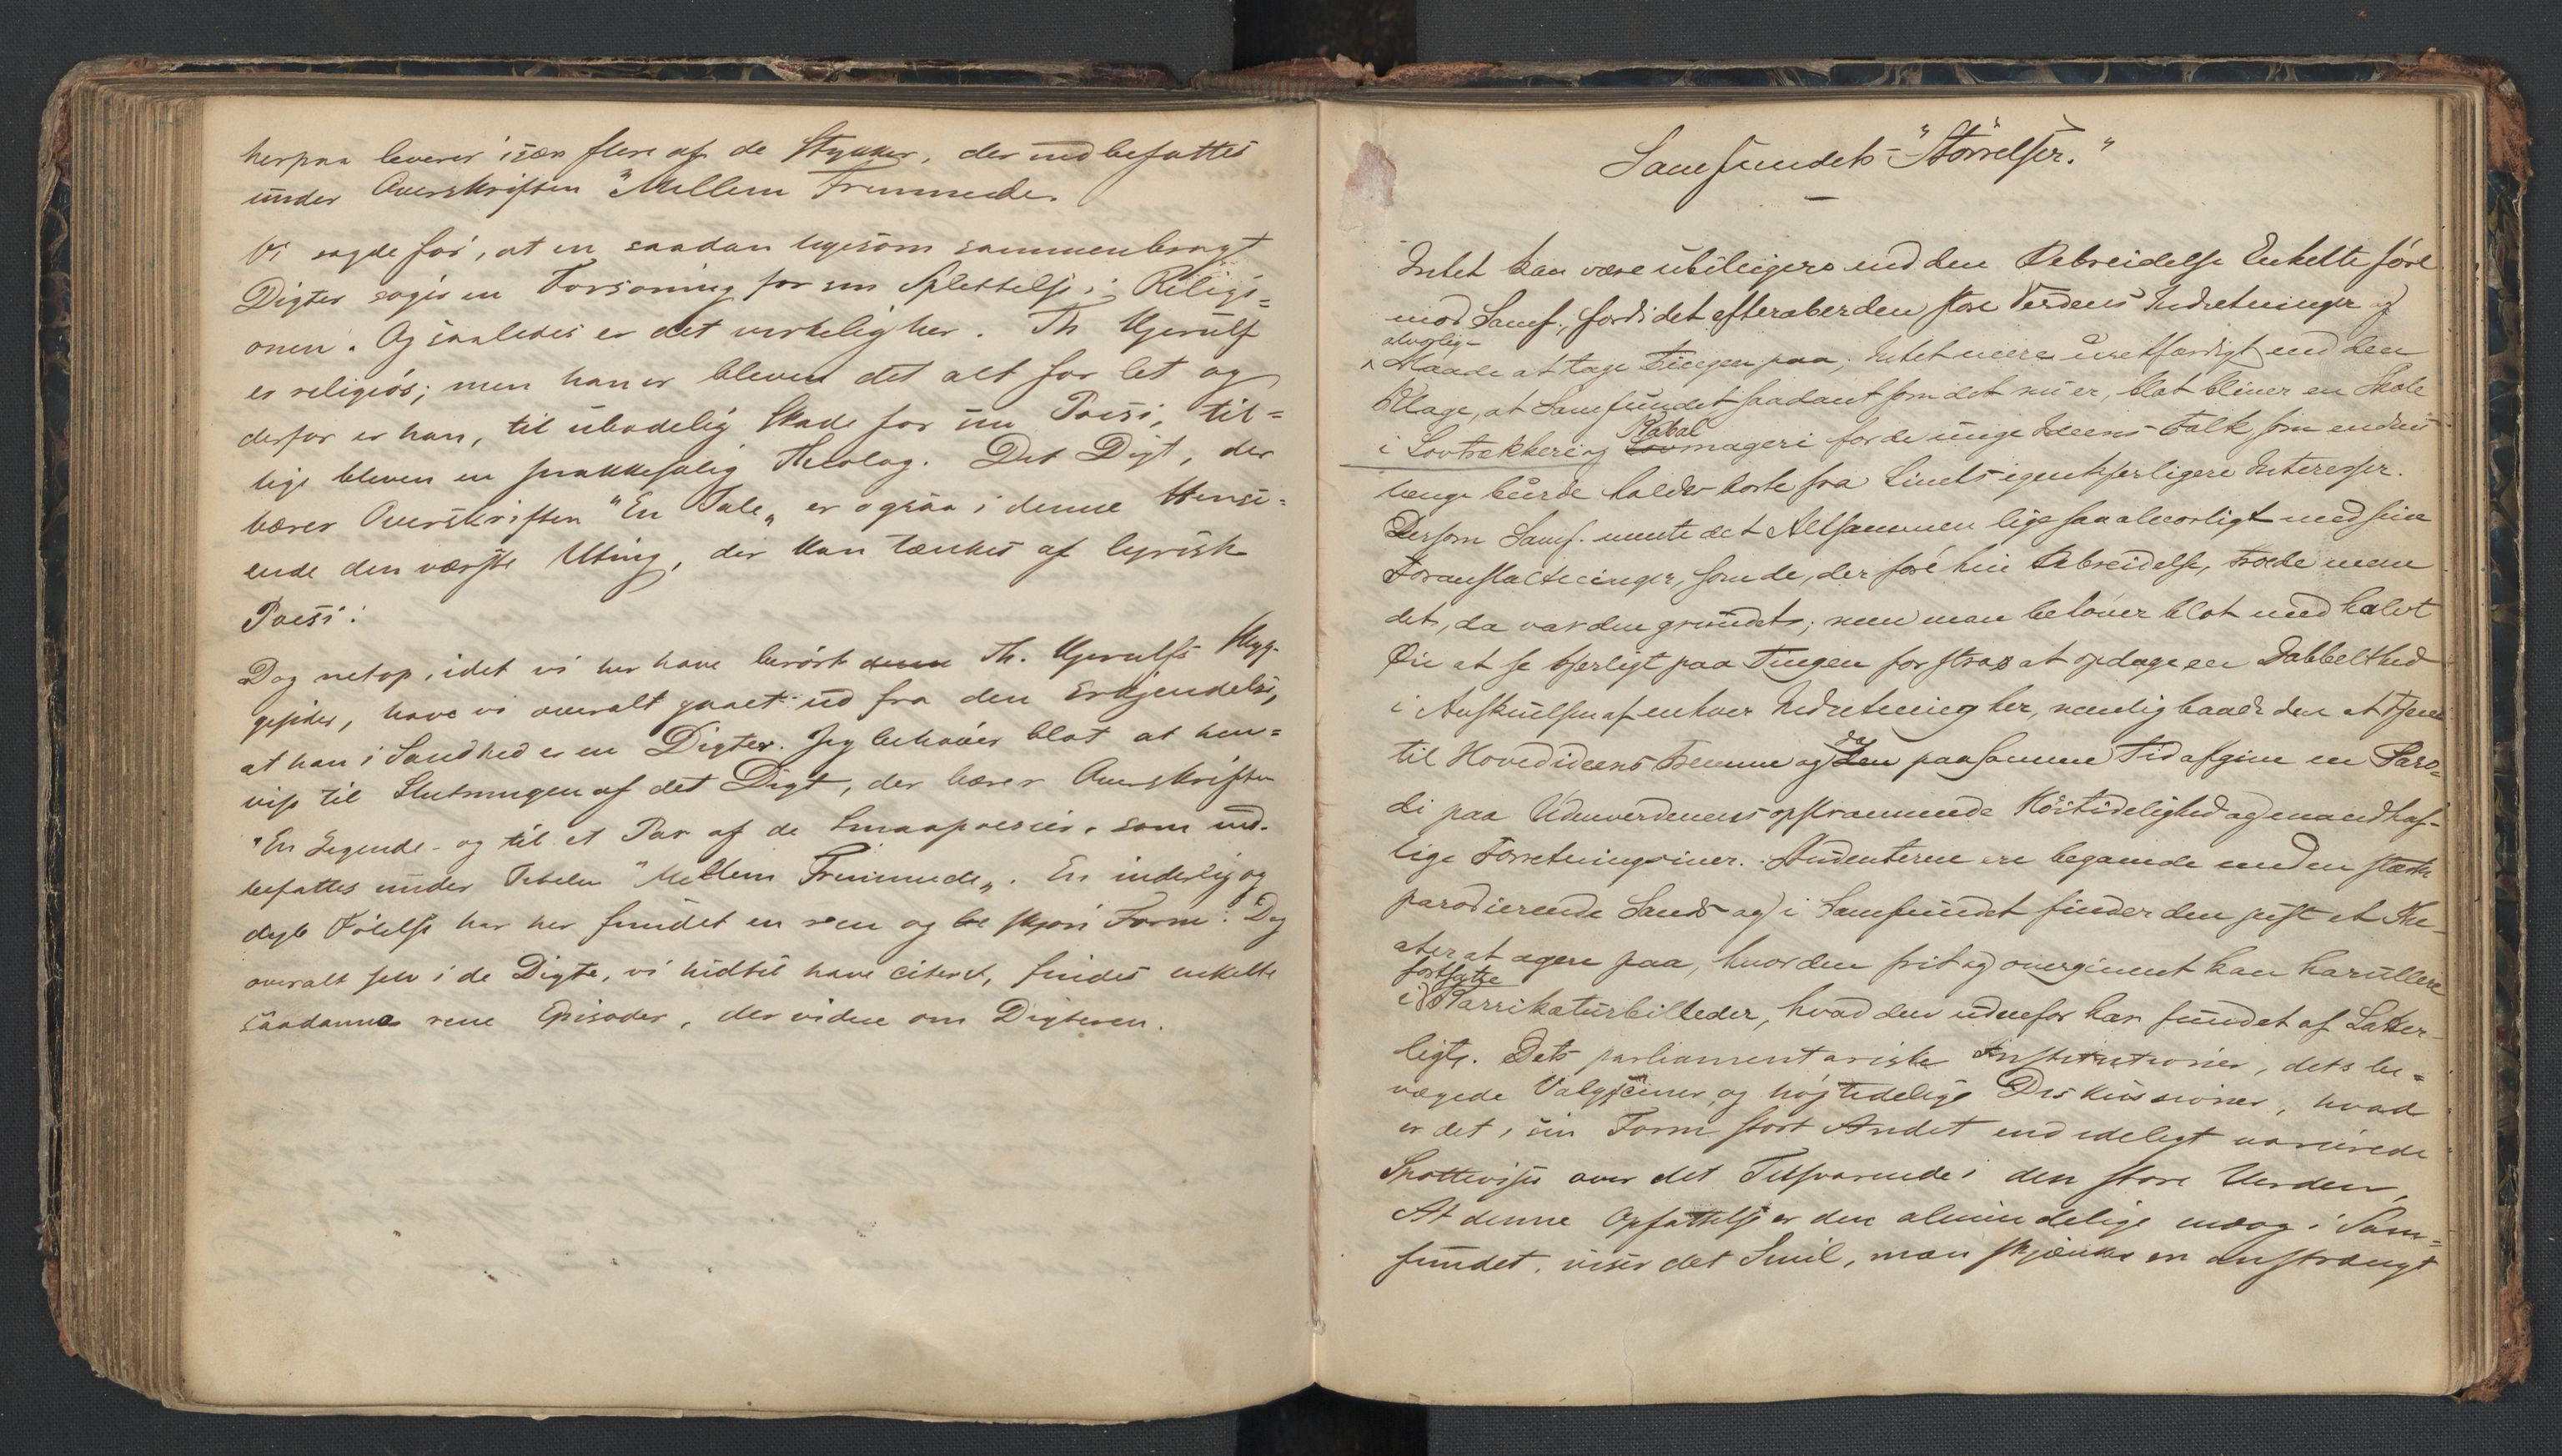 herpaa leverer især flere af de Stykker, der indbefattes
under Overskriften "Mellem Fremmede.
Vi sagde før, at en saadan ligesom sammenbragt
Digter søger en Forsoning for sin Splittelse i Religi=
onen. Og saaledes er det virkelig her. Th Kjerulf
er religiøs; men han er bleven det alt for let og
derfor er han, til ubodelig Skade for sin Poesi, til=
lige bleven en snakkesalig Theolog. Det Digt, der
bærer Overskriften "En Tale" er ogsaa i denne Hensi=
ende den værste Uting, der kan tænkes af lyrisk
Poesi.
Dog netop, idet vi her have berørt denne Th. Kjerulfs Skyg-
gesider, have vi overalt gaaet ud fra den Erkjendelse,
at han i Sandhed er en Digter. Jeg behøver blot at hen=
vise til Slutningen af det Digt, der bærer Overskriften
"En Legende- og til et Par af de Smaapoesier, som ind-
befattes under Titelen "Mellem Fremmede". En inderlig og
dyb Følelse har her fundet en ren og skjøn Form. Dog
overalt selv i de Digte, vi hidtil have citeret, findes enkelte
saadanne rene Episoder, der vidne om Digteren.
Samfundets-"Størrelser."
Intet kan være ubilligere end den Bebreidelse Enkelte føre
mod Samf., fordi det efteraber den store Verdens Indretninger og
alvorlig-
Maade at tage Tingen paa; Intet mere uretfærdigt end den
Klage, at Samfundet saadant som det nu er, blot bliver en Skole
Kabal
i Lovtrækkeri og Lovmageri for de unge Ideens-Folk som endnu
længe burde holdes borte fra Livets egentligere Interesser.
Dersom Samf. mente det Altsammen lige saa alvorligt med sine
Foranstaltninger, som de, der føre hin Bebreidelse, troede man
det, da var den grundet; men man behøver blot med halvt
Øie at se kjerligt paa Tingen for strax at opdage en Dobbelthed
i Anskuelsen af enhver Indretning her, nemlig baade den at tjene
da
til Hovedideens Fremme og den paa samme Tid afgive en Paro=
di paa Udenverdenens opskruende Høitidelighed og mandhaf-
lige Forretningsiver. Studenterne ere begavede med en stærk
parodierende Sands og i Samfundet finder den just et The-
ater at agere paa, hvor den frit og overgivent kan karullere
fortsatte
i Karrikaturbilleder, hvad den udenfor har fundet af Latter-
ligt. Dets parliamentariske Institutioner, dets be=
vægede Valgscener, og højtidelige Diskussioner, hvad
er det i sin Form stort Andet end ideligt varierede
Spotteviser over det Tilsvarende i den store Verden,
At denne Opfattelse er den almindelige ogsaa i Sam=
fundet, viser det Smil, man skjænker en anstrængt